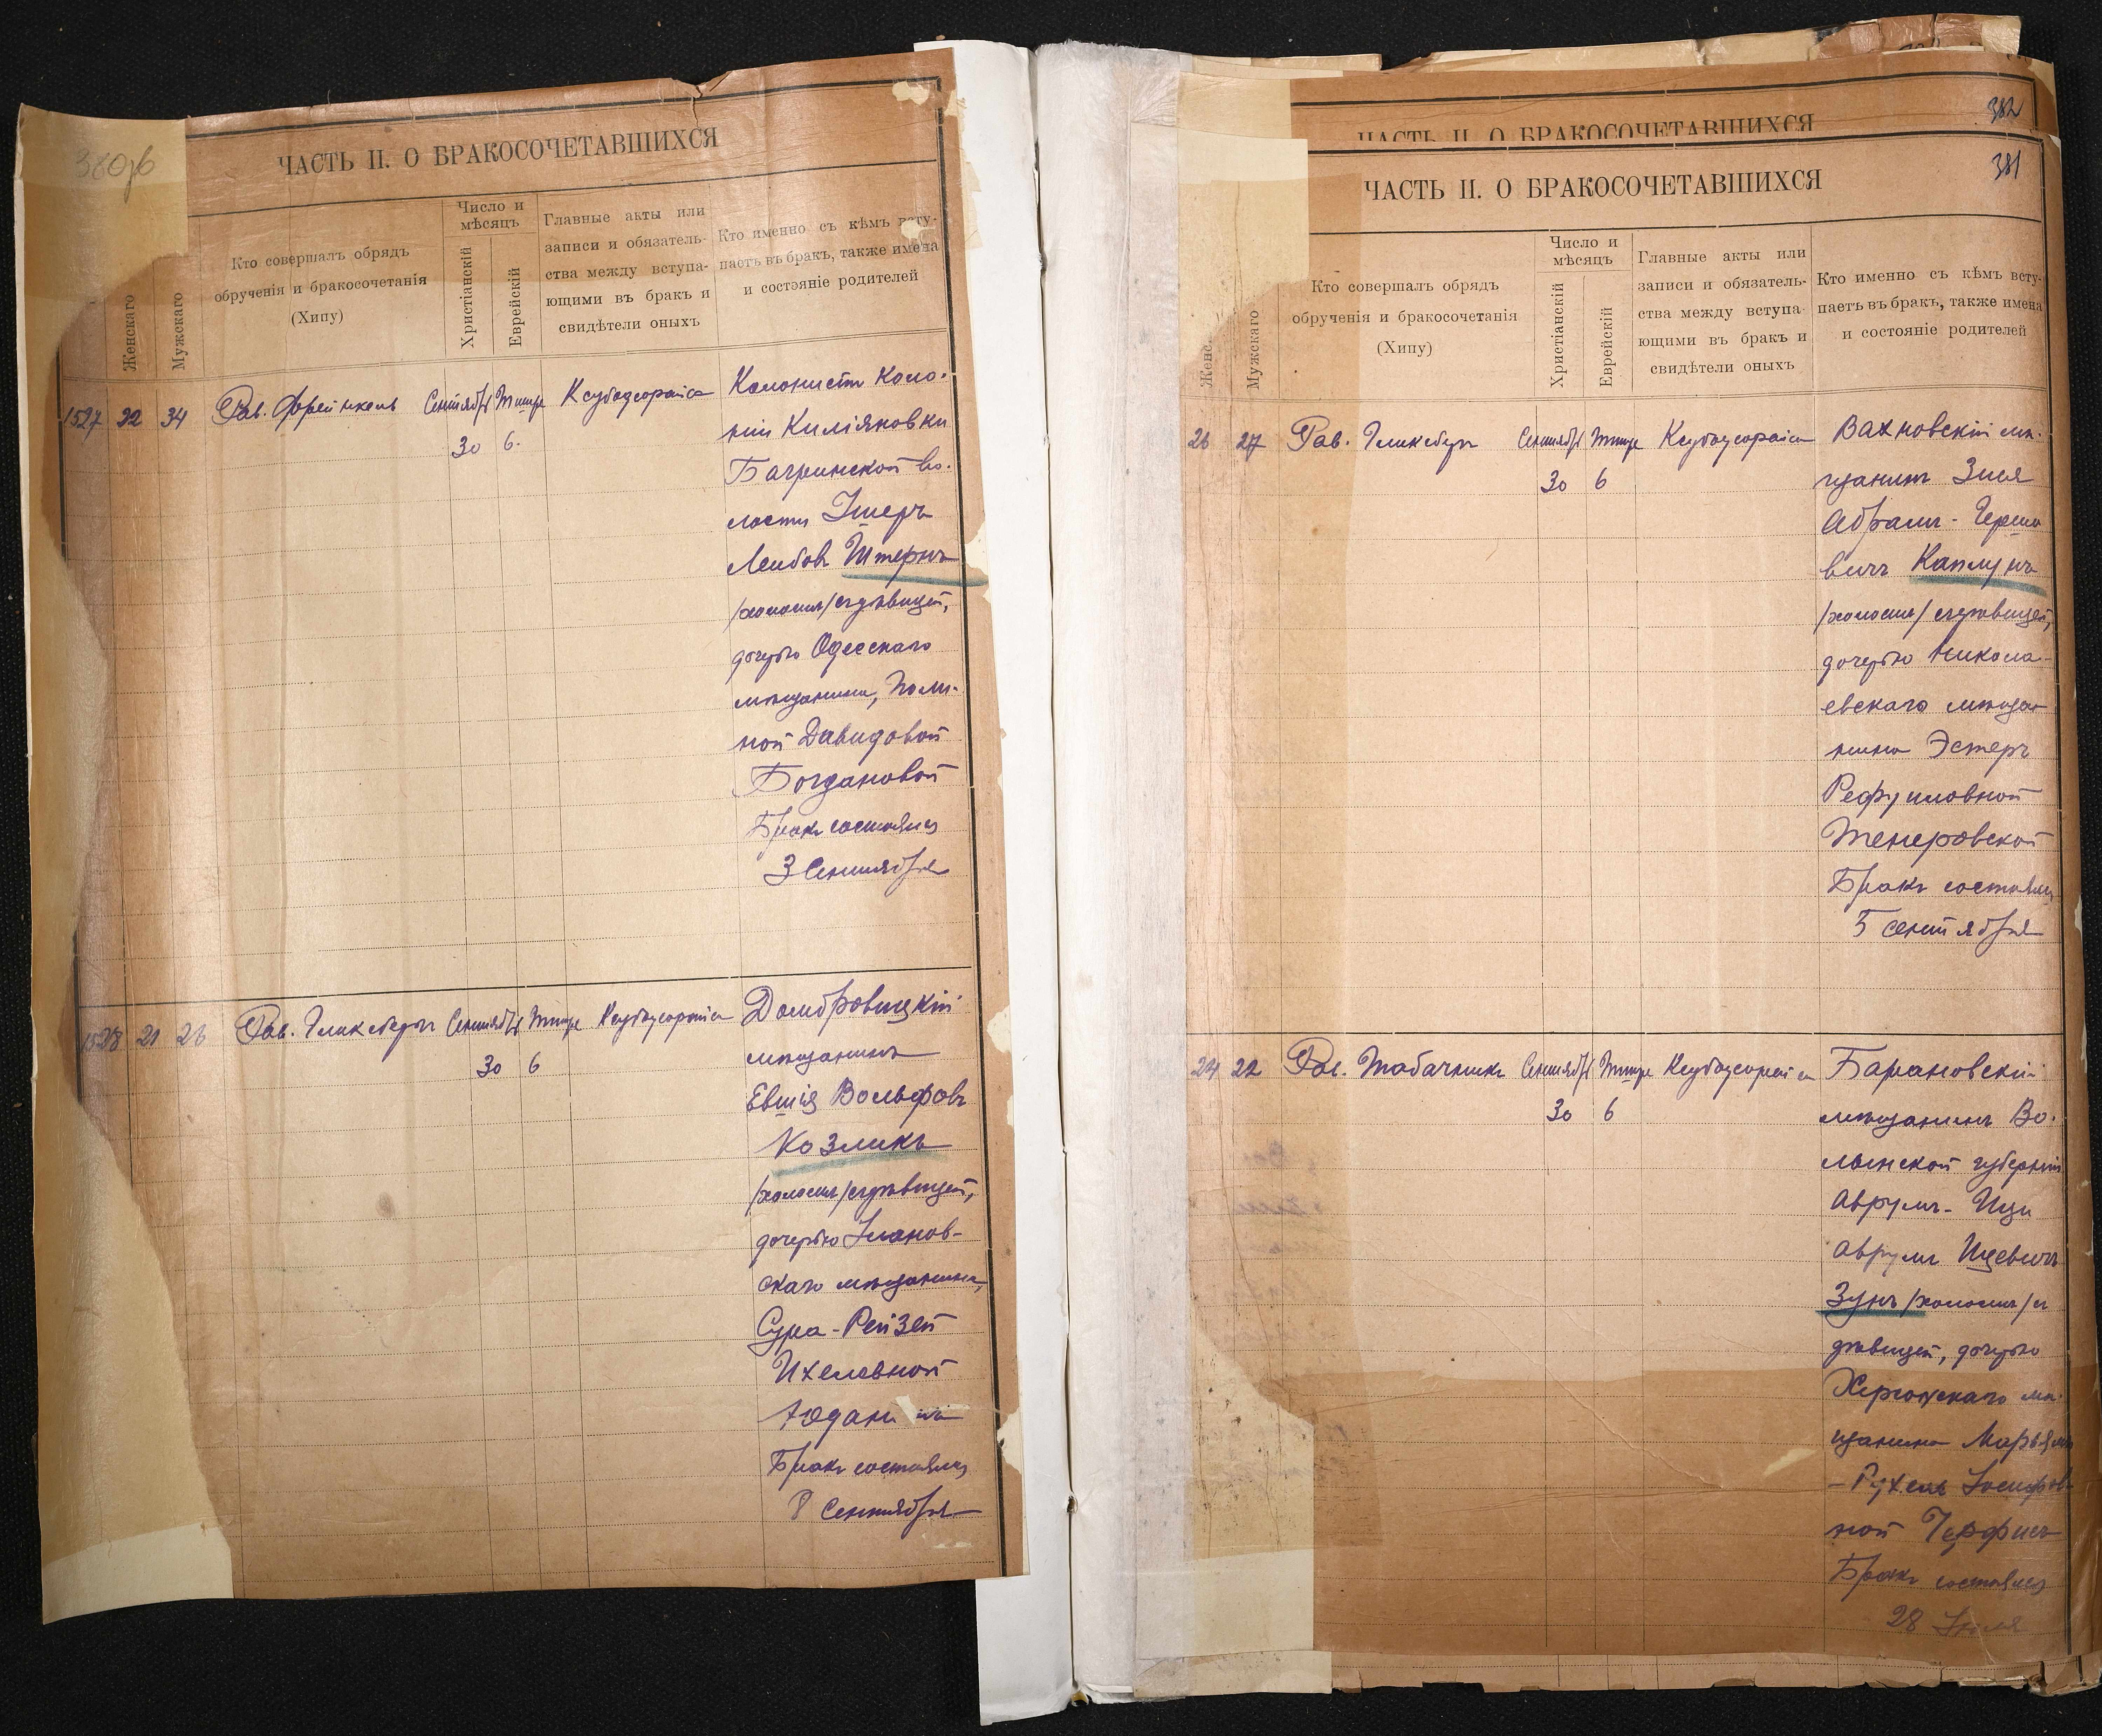 380об
ЧАСТЬ II. О БРАКОСОЧЕТАВШИХСЯ
Женскаго
Мужскаго
Кто совершалъ обрядъ
обрученія и бракосочетанія
(Хипу)
Число и
мѣсяцъ
Христіанскій
Еврейскій
Главные акты или
записи и обязатель-
ства между вступа-
ющими въ бракъ и
свидѣтели оныхъ
Кто именно съ кѣмъ всту-
паетъ въ бракъ, также имена
и состояніе родителей
1527 22 34 Рав. Френкель Сентябрь Тишре
30 6.
Колонистъ Коло-
ніи Киліяновки
Багринской во-
лости
Лейбовъ Штернъ
/холостъ/ съ дѣвицей,
дочерью Одесскаго
мѣщанина, Поли-
ной Давидовой
Богдановой
Бракъ состоялся
3 Сентября
1528 21 26 Рав. Гликсбергъ Сентябрь Тишре
30 6
Домбровицкій
мѣщанинъ
Евшія Вольфовъ
Козликъ
/холостъ/ съ дѣвицей,
дочерью
скаго мѣщанина,
Сура-Рейзей
Ихелевной
Бракъ состоялся
8 Сентября
382
ЧАСТЬ II. О БРАКОСОЧЕТАВШИХСЯ
381
ЧАСТЬ II. О БРАКОСОЧЕТАВШИХСЯ
Женс
Мужскаго
Кто совершалъ обрядъ
обрученія и бракосочетанія
(Хипу)
Число и
мѣсяцъ
Христіанскій
Еврейскій
Главные акты или
записи и обязатель-
ства между вступа-
ющими въ бракъ и
свидѣтели оныхъ
Кто именно съ кѣмъ всту-
паетъ въ бракъ, также имена
и состояніе родителей
26 27 Рав. Гликсбергъ Сентябрь Тишре
30 6
Вахновскій мѣ-
щанинъ Зися
Абрамъ-Гершко
вичъ Каплунъ
/холостъ/ съ дѣвицей,
дочерью Никола-
евскаго мѣща
нина Эстеръ
Рефуиловной
Тенеровской
Бракъ состоялся
5 сентября
24 22 Рав. Табачникъ Сентябрь Тишре
30 6
Барановскій
мѣщанинъ Во-
лынской губерніи
Аврумъ-Ици
Аврумъ Ицевичъ
Зунъ /холостъ/ съ
дѣвицей, дочерью
Херсонскаго мѣ-
щанина Марьямъ
-Рухель Іосифов
ной
Бракъ состоялся
28 Іюля